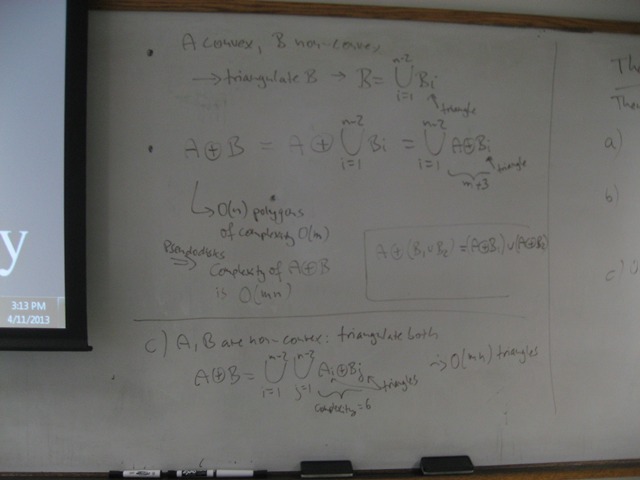 • A convex, B non-convex
→ triangulate B → B = ⋃ᵢ₌₁ⁿ⁻² Bᵢ
triangle
• A⊕B = A ⊕ ⋃ᵢ₌₁ⁿ⁻² Bᵢ = ⋃ᵢ₌₁ⁿ⁻² A⊕Bᵢ
triangle
m+3
↳ O(n) polygons
of complexity O(m)
Pseudodisks
⇒ Complexity of A⊕B
is O(mn)
A⊕(B₁∪B₂) = (A⊕B₁)∪(A⊕B₂)
c) A, B are non-convex: triangulate both
A⊕B = ⋃ᵢ₌₁ᵐ⁻² ⋃ⱼ₌₁ⁿ⁻² Aᵢ⊕Bⱼ → O(mn) triangles
triangles
complexity = 6
a)
b)
c)
y
3:13 PM
4/11/2013